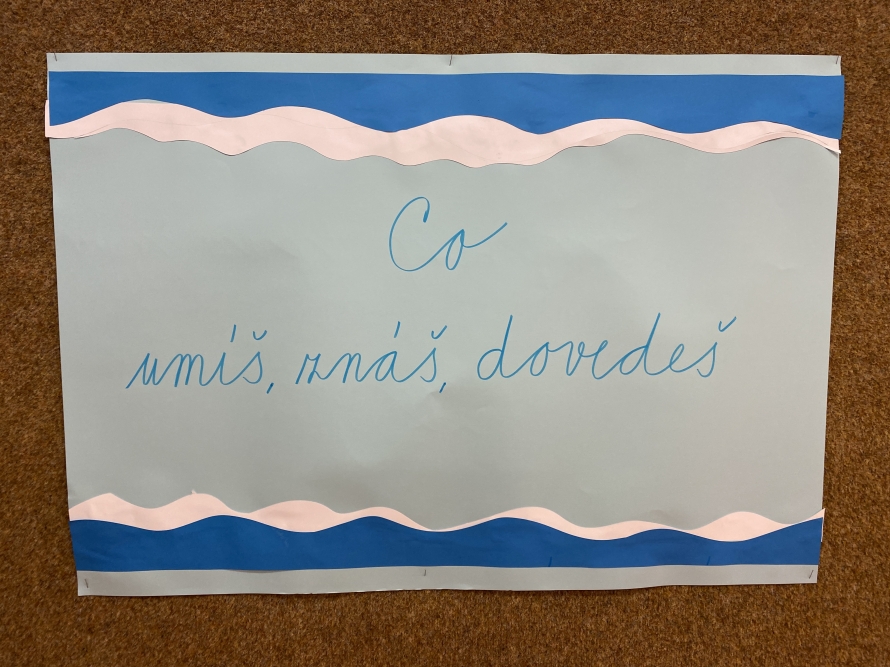 Co
umíš, znáš, dovedeš